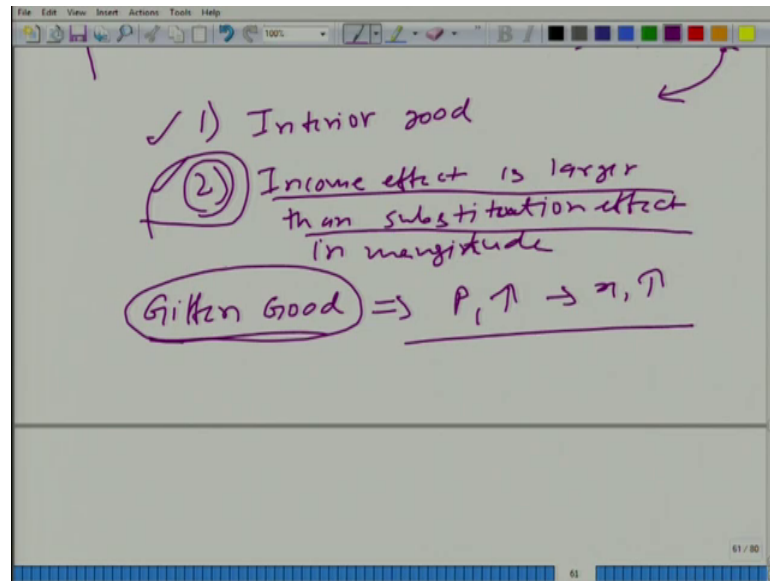 File Edit View Insert Actions Tools Help
100%
✓ 1) Inferior good
2) Income effect is larger
than substitution effect
in mangitude
Giffen Good ⇒ P₁ ↑ → x₁ ↑
61 / 80
61